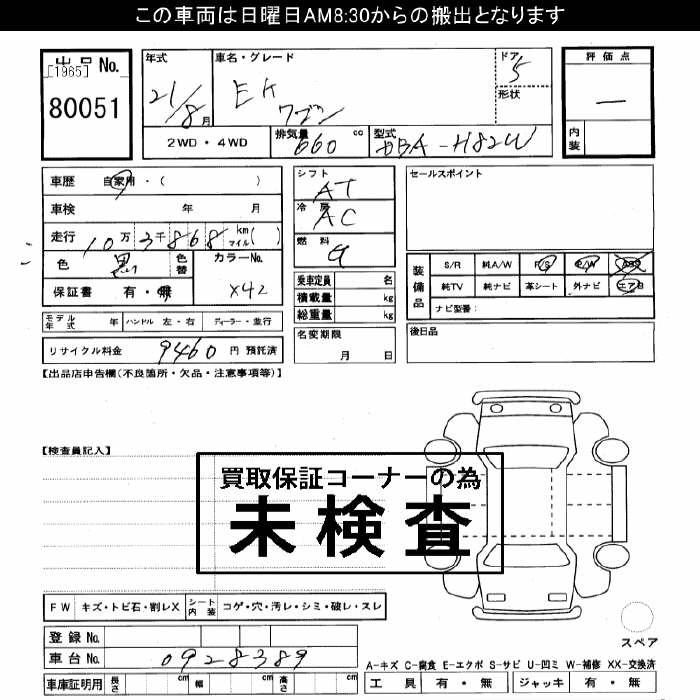 この車両は日曜日AM8:30からの搬出となります
出品 No.
[1965]
80051
年式
21/8月
車名・グレード
EK ワゴン
ドア
5
形状
評価点
—
内装
2WD・4WD
排気量
660 cc
型式
DBA-H82W
車歴 自家用・( )
車検 年 月
走行 10万3千868 km マイル( )
色 黒 色替 カラーNo.
X42
保証書 有・無
モデル年式 年 ハンドル 左・右 ディーラー・並行
リサイクル料金 9460 円 預託済
シフト
AT
冷房
AC
燃料
G
乗車定員 名
積載量 kg
総重量 kg
名変期限
月 日
セールスポイント
装備品
S/R 純A/W P/S P/W ABS
純TV 純ナビ 革シート 外ナビ エアB
ナビ型番:
後日品
【出品店申告欄(不良箇所・欠品・注意事項等)】
【検査員記入】
買取保証コーナーの為
未検査
FW キズ・トビ石・割レX シート内装 コゲ・穴・汚レ・シミ・破レ・スレ
スペア
登録 No.
車台 No. 0928389
車庫証明用 長さ cm 幅 cm 高さ cm
A-キズ C-腐食 E-エクボ S-サビ U-凹ミ W-補修 XX-交換済
工具 有・無 ジャッキ 有・無